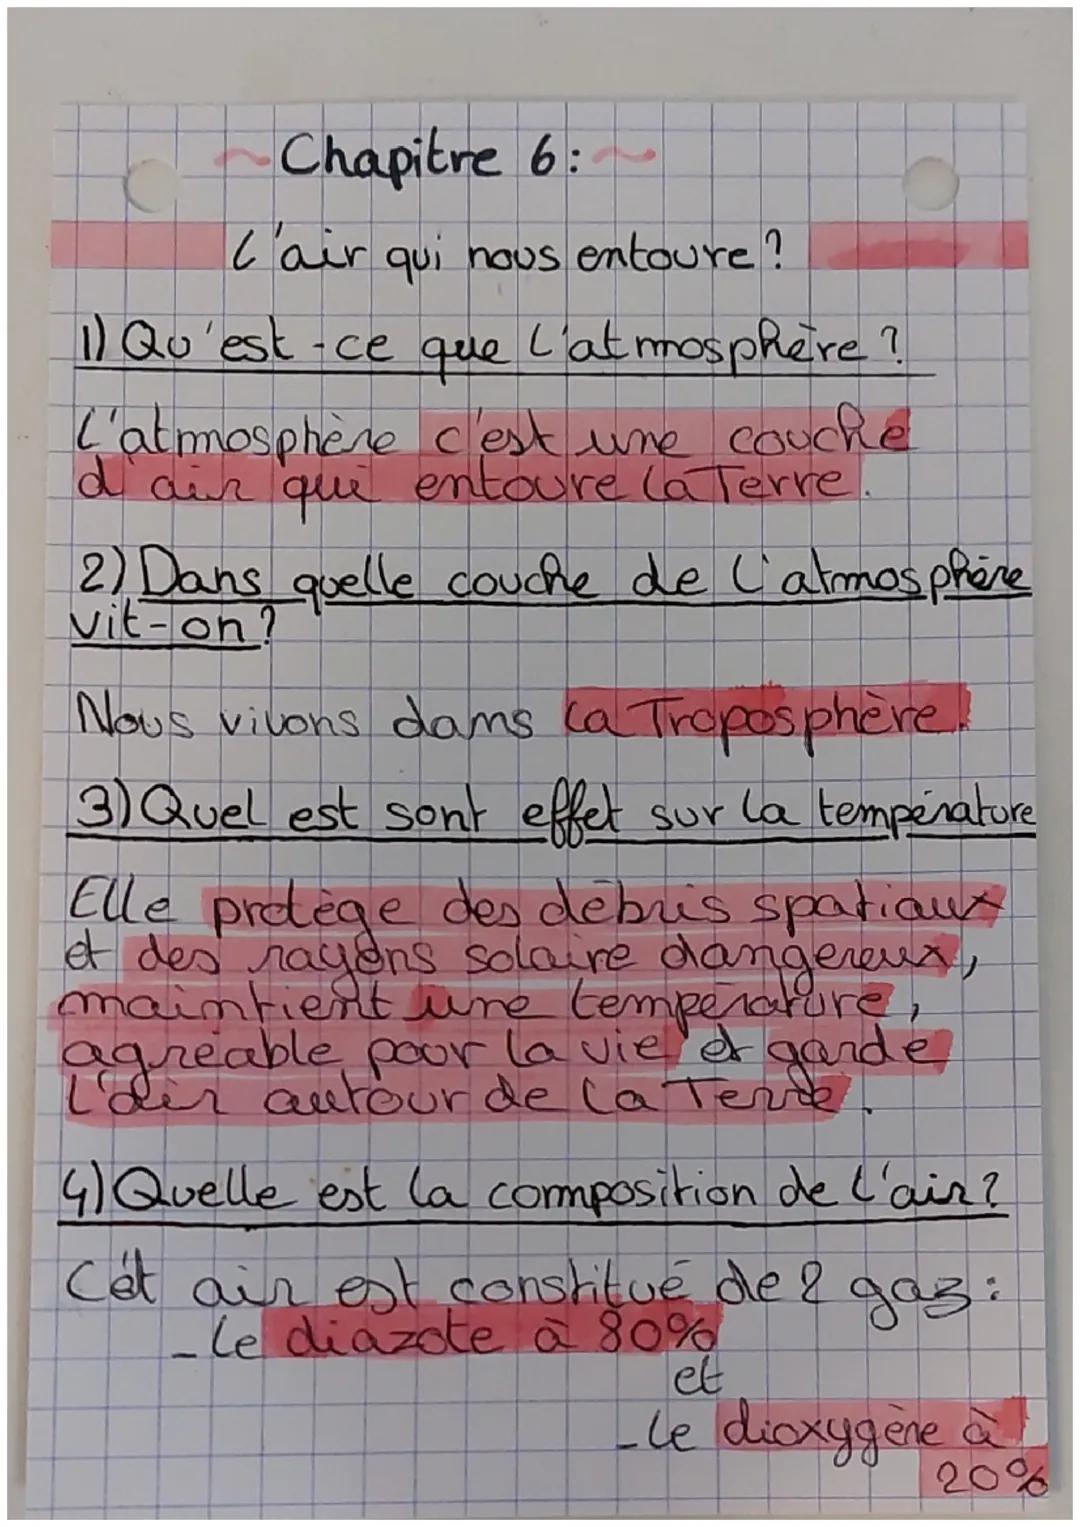 ~ Chapitre 6: ~
L'air qui nous entoure?
1) Qu'est-ce que l'atmosphère?
L'atmosphère c'est une couche
d'air qui entoure la Terre.
2) Dans quelle couche de l'atmosphère
vit-on?
Nous vivons dans la Troposphère.
3) Quel est sont effet sur la température
Elle protège des débris spatiaux
et des rayons solaire dangereux,
maintient une température,
agréable pour la vie et garde
l'air autour de la Terre.
4) Quelle est la composition de l'air?
Cét air est constitué de 2 gaz:
- Le diazote à 80%
et
- Le dioxygène à
20%